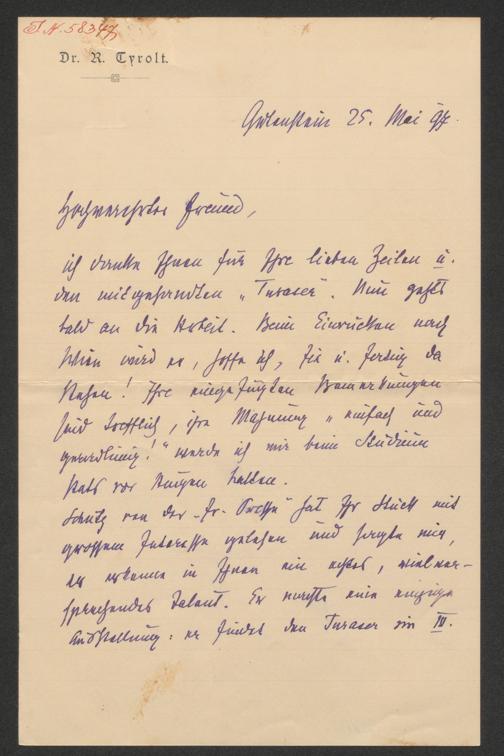 I.N. 58347
Dr. R. Tyrolt.
Gutenstein 25. Mai 97.
Hochverehrter Freund,
ich danke Ihnen für Ihre lieben Zeilen u.
den mitgesandten „Turaser“. Nun geht's
bald an die Arbeit. Beim Einrücken nach
Wien wird er, hoffe ich, fix u. fertig da
stehen! Ihre eingefügten Bemerkungen
sind trefflich, ihre Mahnung „einfach und
geradlinig!“ werde ich mir beim Studium
stets vor Augen halten.
Schütz von der „Fr. Presse“ hat Ihr Stück mit
grossem Interesse gelesen und sagte mir,
er erkenne in Ihnen ein echtes, vielver-
sprechendes Talent. Er machte eine einzige
Ausstellung: er findet den Turaser im IV.